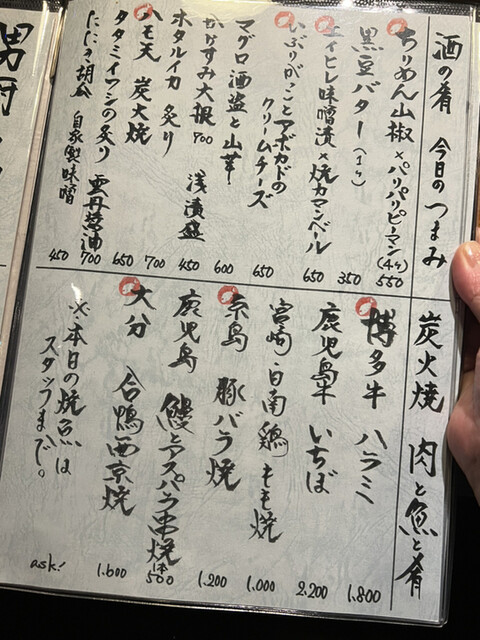 酒の肴 今日のつまみ
ちりめん山椒×パリパリピーマン(4ヶ) 550
黒豆バター(1ヶ) 350
エイヒレ味噌漬×焼カマンベール 650
いぶりがっことアボカドの
クリームチーズ 650
マグロ酒盗と山芋 600
からすみ大根 700 浅漬盛 450
ホタルイカ 炙り 700
ハモ天 炭火焼 650
タタミイワシの炙り 雲丹醤油 700
自家製味噌 450
炭火焼 肉と魚と肴
博多牛 ハラミ 1.800
鹿児島牛 いちぼ 2.200
宮崎・日南鶏 もも焼 1.000
糸島 豚バラ焼 1.200
鹿児島 鰻とアスパラ串焼 1本 500
大分 合鴨西京焼 1.600
※本日の焼魚は
スタッフまで。 ask!
男厨